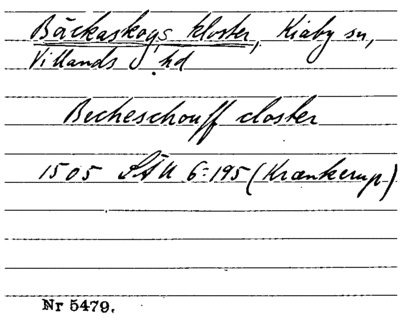 Bäckaskogs kloster, Kiaby sn,
Villands hd
Becheschouff closter
1505 SÄU 6:195 (Krænkerup)
Nr 5479.